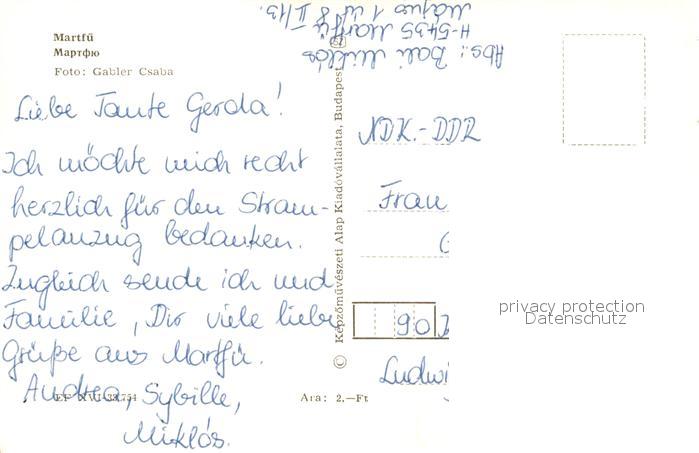 Martfü
Мартфю
Foto: Gabler Csaba
Liebe Tante Gerda!
Ich möchte mich recht
herzlich für den Stram-
pelanzug bedanken.
Zugleich sende ich und
Familie, Dir viele liebe
Grüße aus Martfü.
Andrea, Sybille,
Miklós.
Ára: 2,—Ft
© Képzőművészeti Alap Kiadóvállalata, Budapest
Abs.: Bali Miklós
H-5435 Martfü
Május 1 út 8 II/13.
NDK.-DDR
Frau
90
Ludwi
privacy protection
Datenschutz